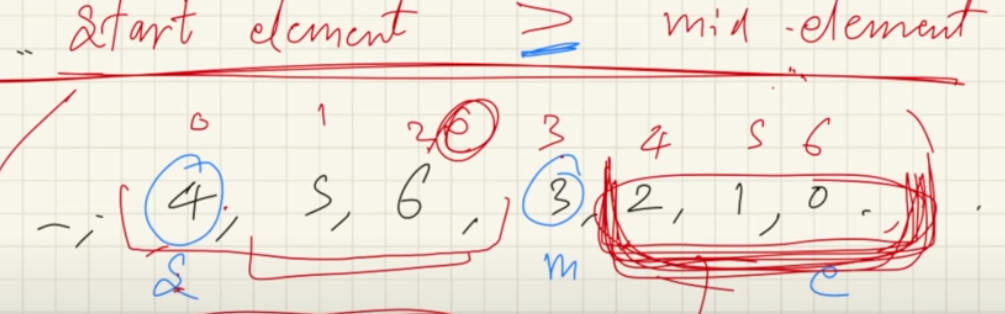 start element ≥ mid-element
0 1 2 e 3 4 5 6
4, 5, 6, 3, 2, 1, 0
S m e